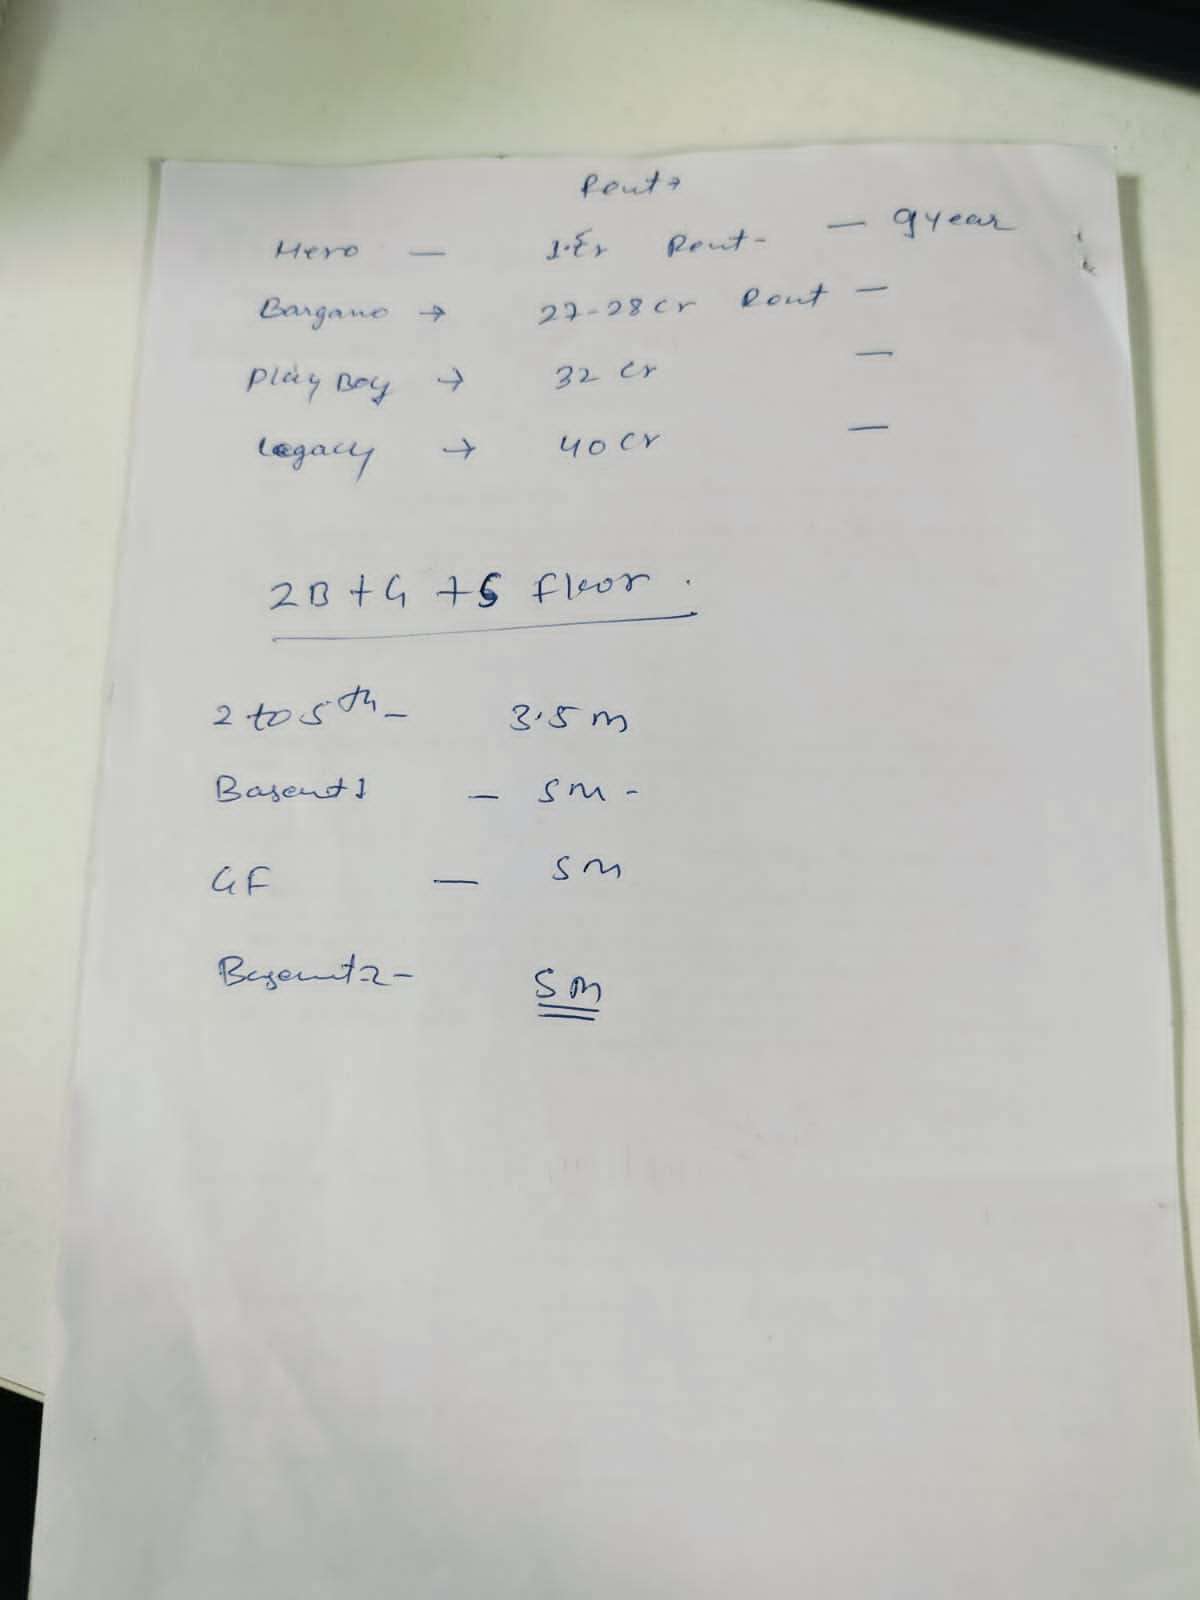 Rent →
Hero — Rent - — 9 year
Bargano → 27-28 cr Rent —
Play Boy → 32 cr —
Legacy → 40 cr —
2B + G + 5 floor .
2 to 5th - 3.5 m
Basemt 1 — 5m -
GF — 5m
Basemt 2 - 5m